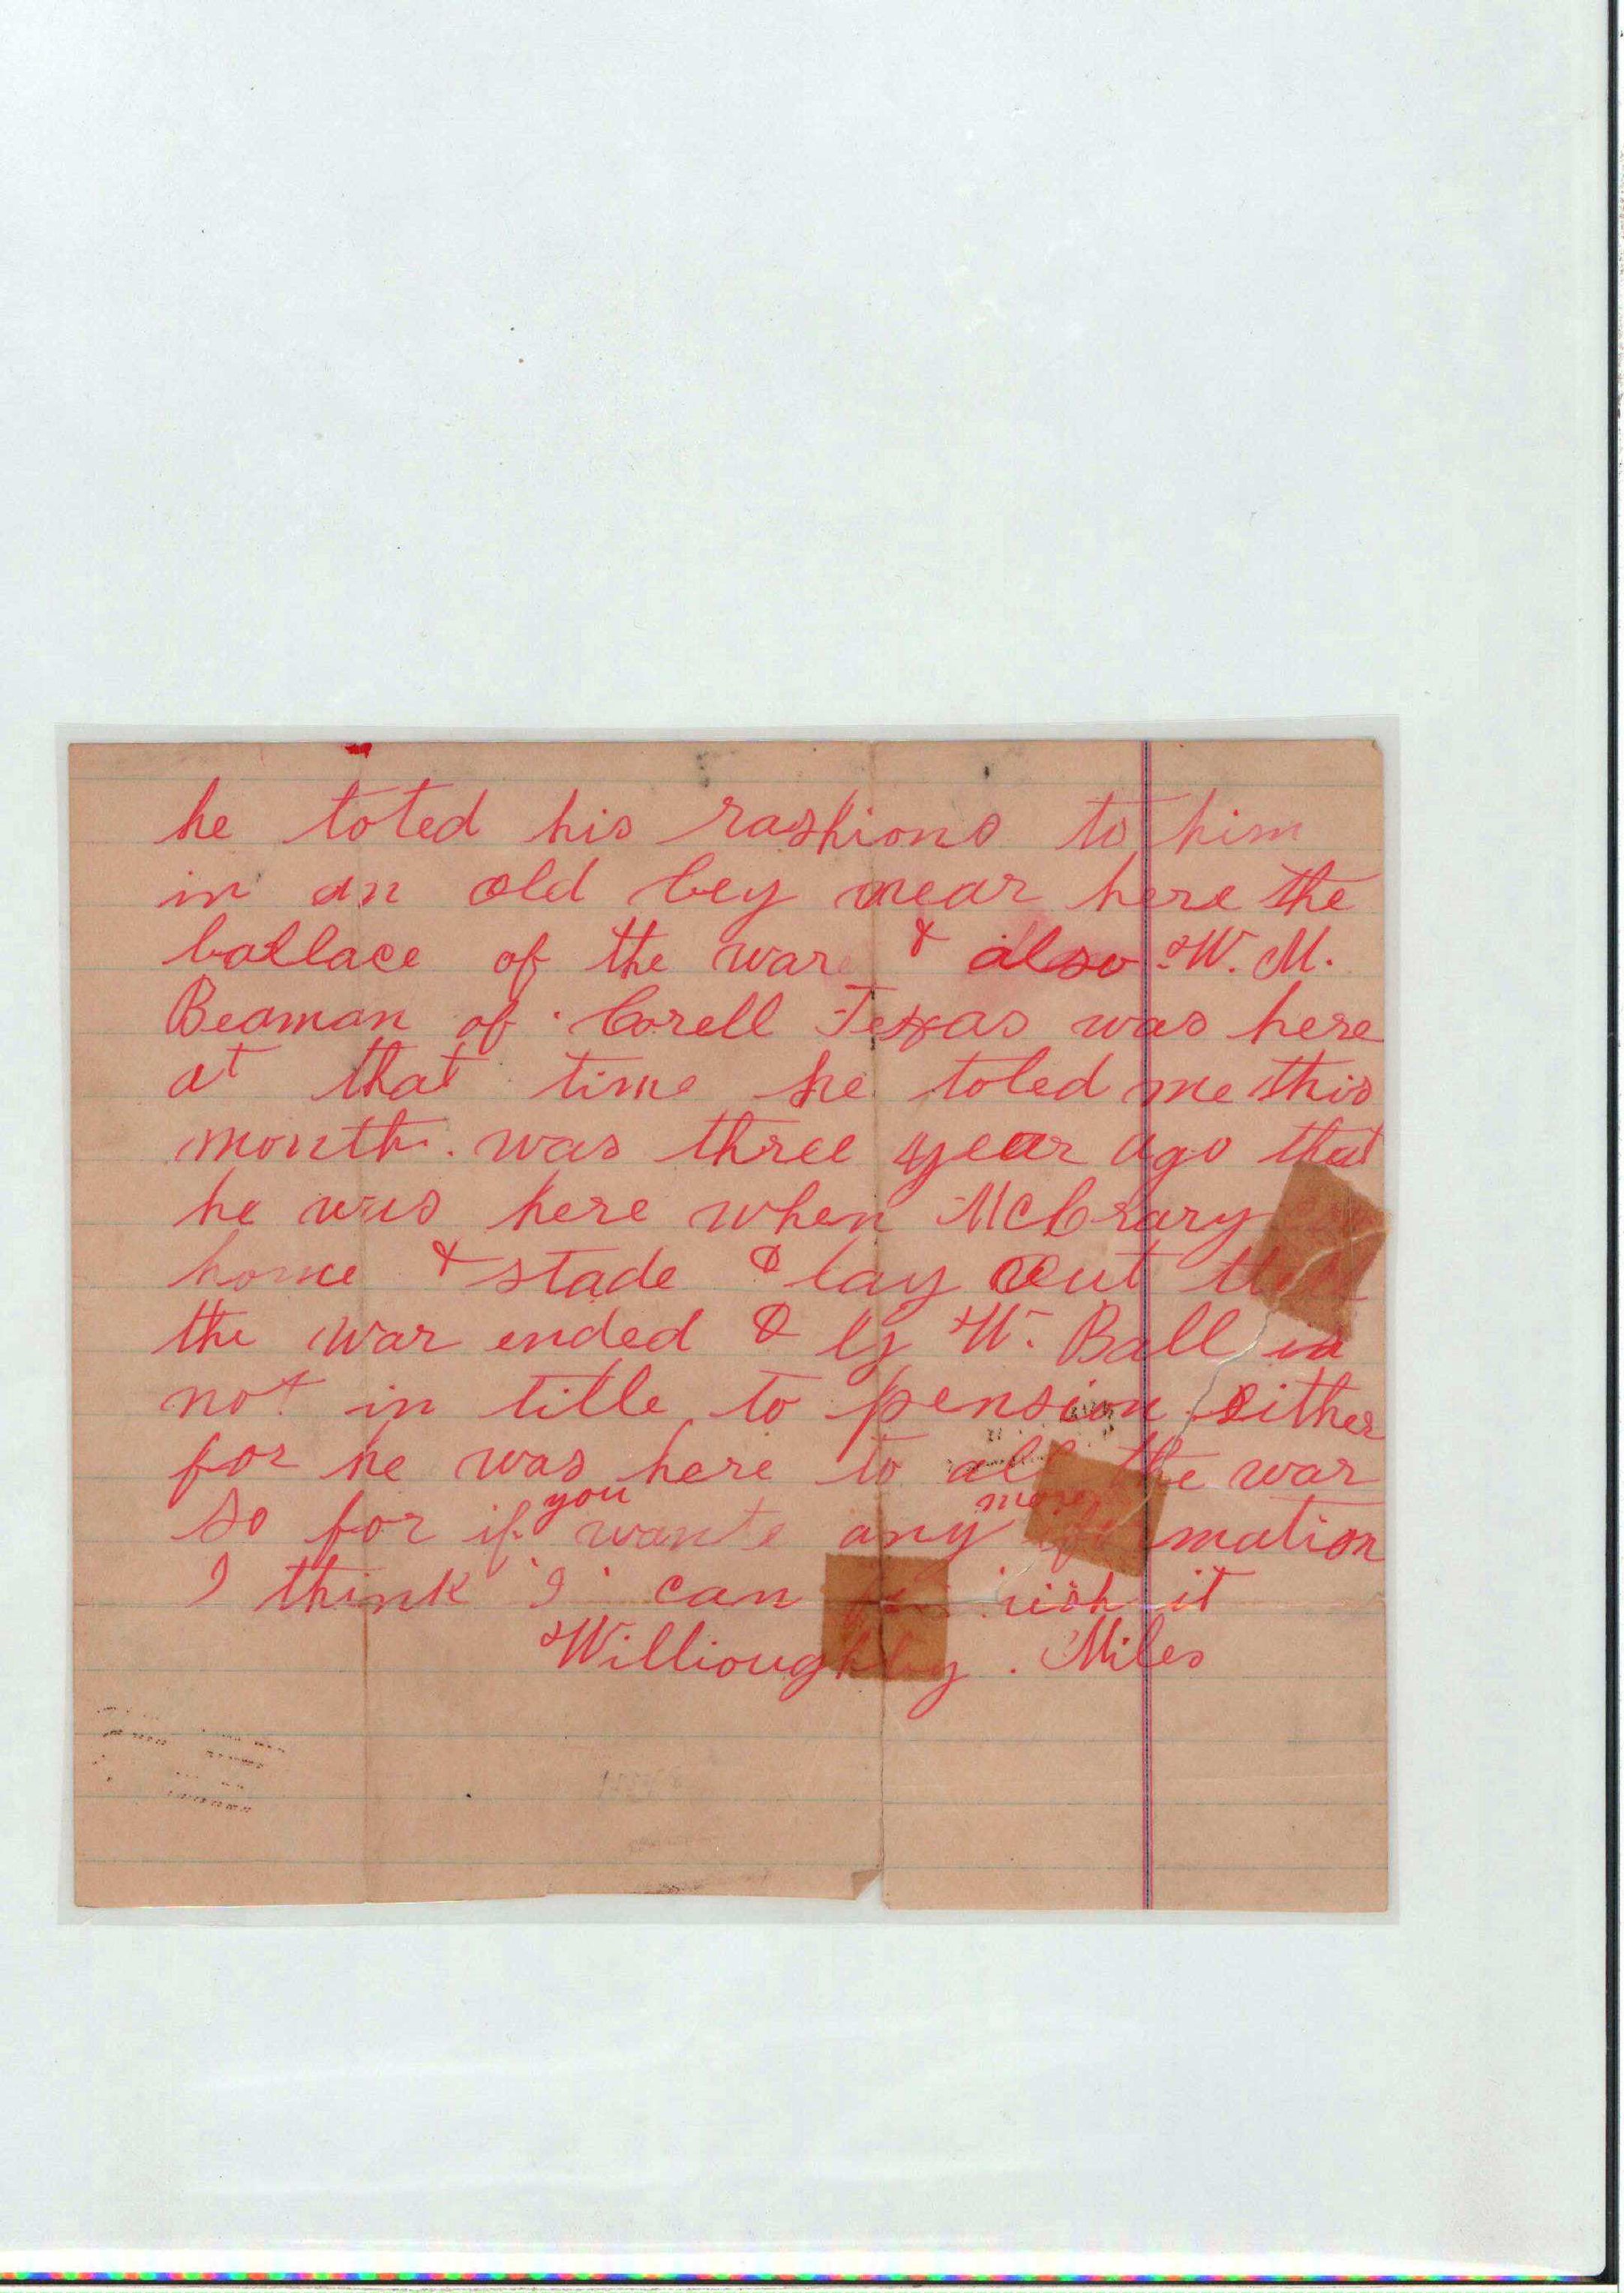 he toted his rashions to him
in an old bey near here the
ballace of the war & also W. M.
Beaman of Corell Texas was here
at that time he toled me this
month was three year ago that
he was here when McCrary
home & stade & lay out
the war ended & G W. Ball is
not in title to pension either
for he was here to all the war
so for if you wants any more mation
I think I can it
Willioughby. Miles